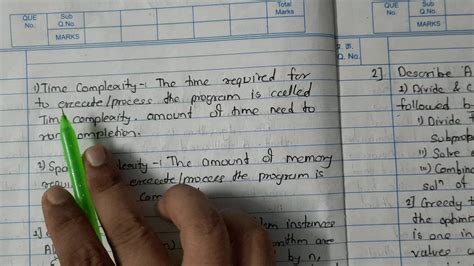 QUE No.
Sub Q.No.
MARKS
Total Marks
QUE No.
Sub Q.No.
MARKS
प्र. क्र.
Q. No.
1) Time Complexity -: The time required for
to execute/process the program is ccelled
Time complexity. amount of time need to
run completion.
2) Spa lexity -: The amount of memory
requi execcete/process the program is
com
1]
instances
Al ithm are
by n,
2] Describe A
1) Divide & C
followed b
i) Divide
Sub
ii) Solve
iii) Combin
solⁿ of
2] Greedy t
the optim
is one in
values